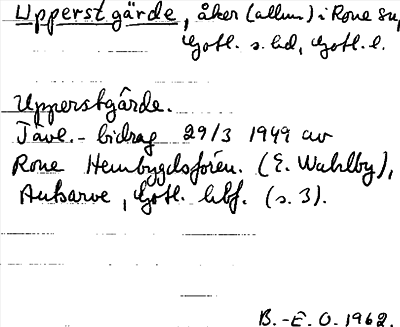 Upperst gärde, åker (allm.) i Rone sn,
Gotl. s. hd, Gotl. l.
Upperstgårde.
Tävl.- bidrag 29/3 1949 av
Rone Hembygdsfören. (E. Wahlby),
Autsarve, Gotl. lbf. (s. 3).
B.-E. O. 1962.